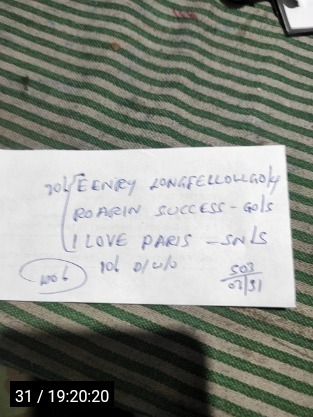 20/- { EENRY LONGFELLOW GO/4
ROARIN SUCCESS - GO/S
I LOVE PARIS - SN/S
100/- 10/- D/W/D 503
07/31
31 / 19:20:20